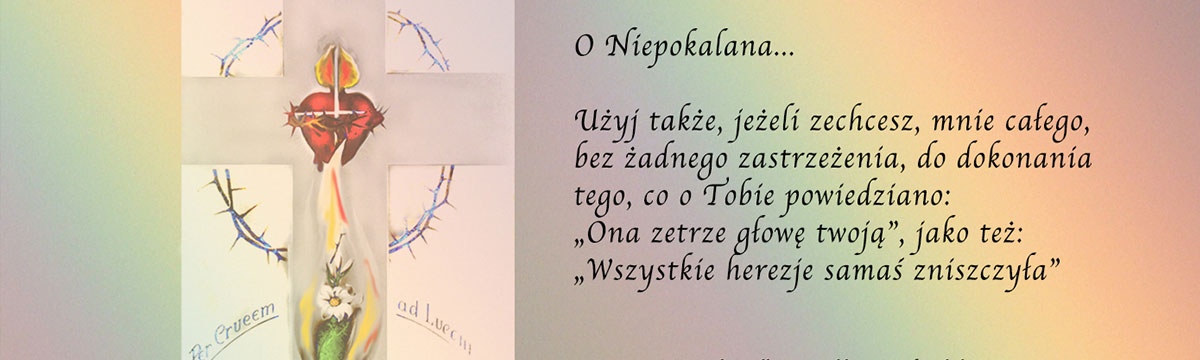 O Niepokalana...
Użyj także, jeżeli zechcesz, mnie całego,
bez żadnego zastrzeżenia, do dokonania
tego, co o Tobie powiedziano:
„Ona zetrze głowę twoją”, jako też:
„Wszystkie herezje samaś zniszczyła”
Per Crucem
ad Lucem